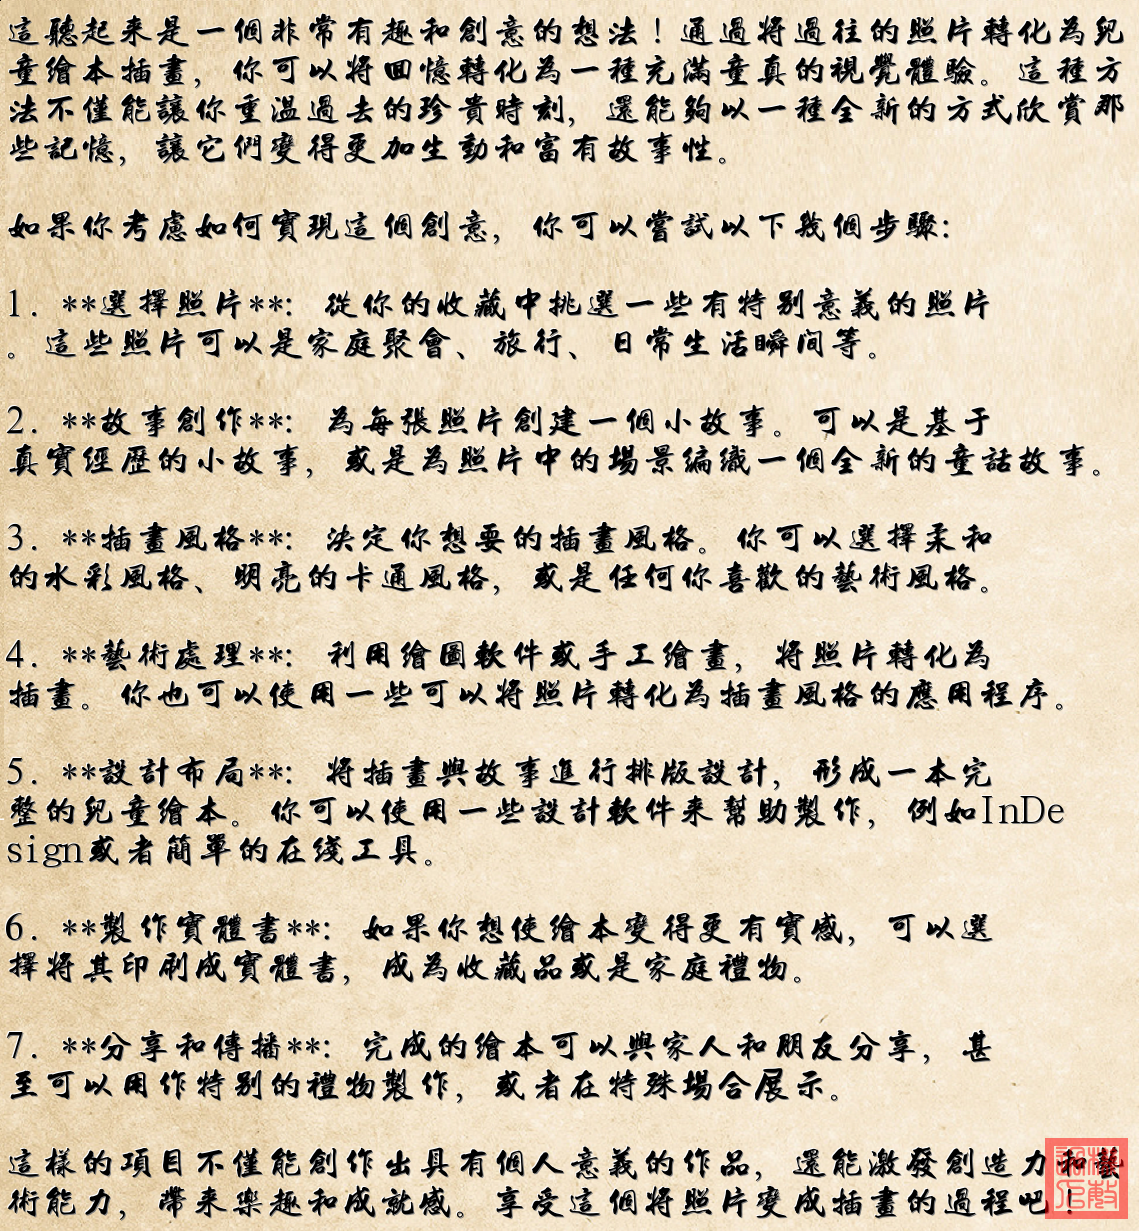 這聽起来是一個非常有趣和創意的想法！通過將過往的照片轉化為兒
童繪本插畫，你可以將回憶轉化為一種充滿童真的視覺體驗。這種方
法不僅能讓你重溫過去的珍貴時刻，還能夠以一種全新的方式欣賞那
些記憶，讓它們變得更加生動和富有故事性。
如果你考慮如何實現這個創意，你可以嘗試以下幾個步驟：
1. **選擇照片**：從你的收藏中挑選一些有特別意義的照片
。這些照片可以是家庭聚會、旅行、日常生活瞬间等。
2. **故事創作**：為每張照片創建一個小故事。可以是基于
真實經歷的小故事，或是為照片中的場景編織一個全新的童話故事。
3. **插畫風格**：決定你想要的插畫風格。你可以選擇柔和
的水彩風格、明亮的卡通風格，或是任何你喜歡的藝術風格。
4. **藝術處理**：利用繪圖軟件或手工繪畫，將照片轉化為
插畫。你也可以使用一些可以將照片轉化為插畫風格的應用程序。
5. **設計布局**：將插畫與故事進行排版設計，形成一本完
整的兒童繪本。你可以使用一些設計軟件来幫助製作，例如InDe
sign或者簡單的在綫工具。
6. **製作實體書**：如果你想使繪本變得更有實感，可以選
擇將其印刷成實體書，成為收藏品或是家庭禮物。
7. **分享和傳播**：完成的繪本可以與家人和朋友分享，甚
至可以用作特別的禮物製作，或者在特殊場合展示。
這樣的項目不僅能創作出具有個人意義的作品，還能激發創造力和藝
術能力，帶来樂趣和成就感。享受這個將照片變成插畫的過程吧！